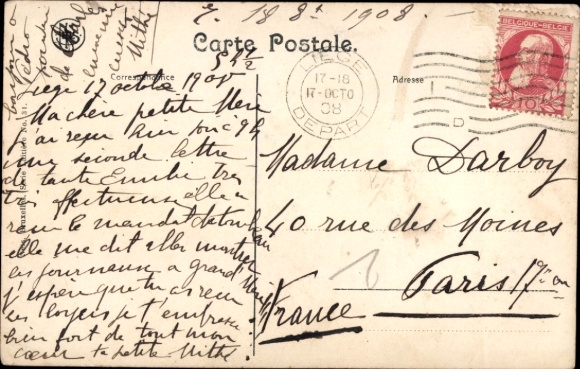 E. 18 8t 1908
Carte Postale.
Correspondance
Adresse
BELGIQUE-BELGIË
10
LIEGE
17-18
17-OCTO
08
DEPART
D
5 h 1/2
Liege 17 octobre 1908
Ma chère petite Mère
j'ai reçu hier soir à 9h
une seconde lettre
de tante Emilie très
très affectueuse elle a
reçu le mandat
elle me dit aller montrer
les journaux a grand
j'espère que tu as reçu
les loyers je t'embrasse
bien fort de tout mon
cœur ta petite Mithé
Madame Darboy
40 rue des Moines
Paris 17e
France